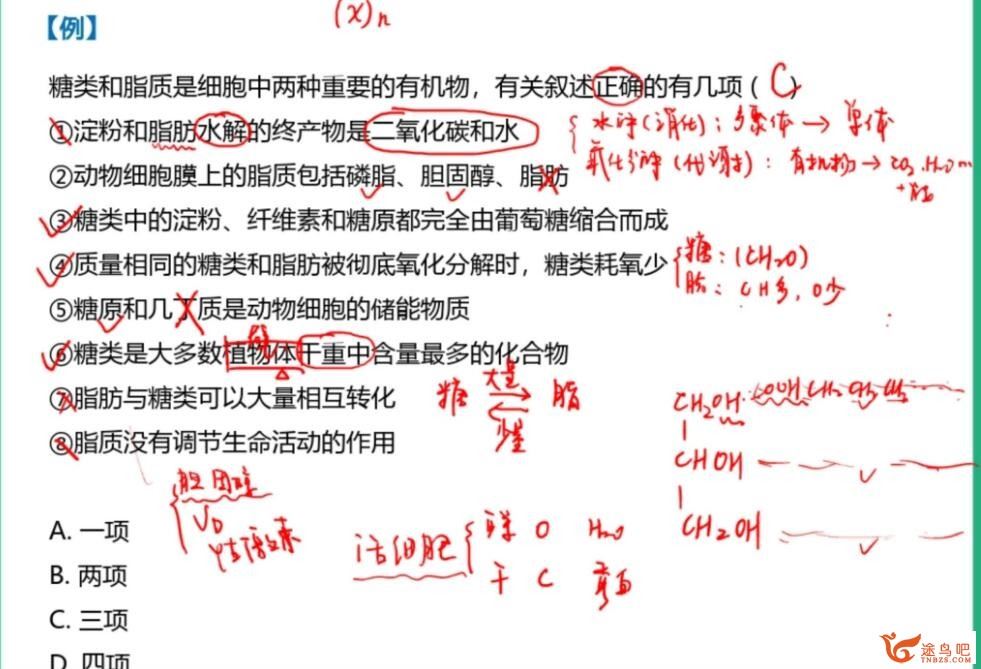 (x)n
【例】
糖类和脂质是细胞中两种重要的有机物，有关叙述正确的有几项（ C ）
①淀粉和脂肪水解的终产物是二氧化碳和水
水解(消化)：多聚体→单体
②动物细胞膜上的脂质包括磷脂、胆固醇、脂肪
氧化分解(代谢)：有机物→CO₂、H₂O
+能
③糖类中的淀粉、纤维素和糖原都完全由葡萄糖缩合而成
④质量相同的糖类和脂肪被彻底氧化分解时，糖类耗氧少
糖：(CH₂O)
脂：CH多，O少
⑤糖原和几丁质是动物细胞的储能物质
⑥糖类是大多数植物体干重中含量最多的化合物
⑦脂肪与糖类可以大量相互转化
糖 大量 脂
少量
CH₂OH
⑧脂质没有调节生命活动的作用
CHOH
胆固醇
CH₂OH
VD
性激素
A. 一项
活细胞
鲜 O H₂O
干 C 蛋白
B. 两项
C. 三项
D. 四项
途鸟吧
TNBZS.COM